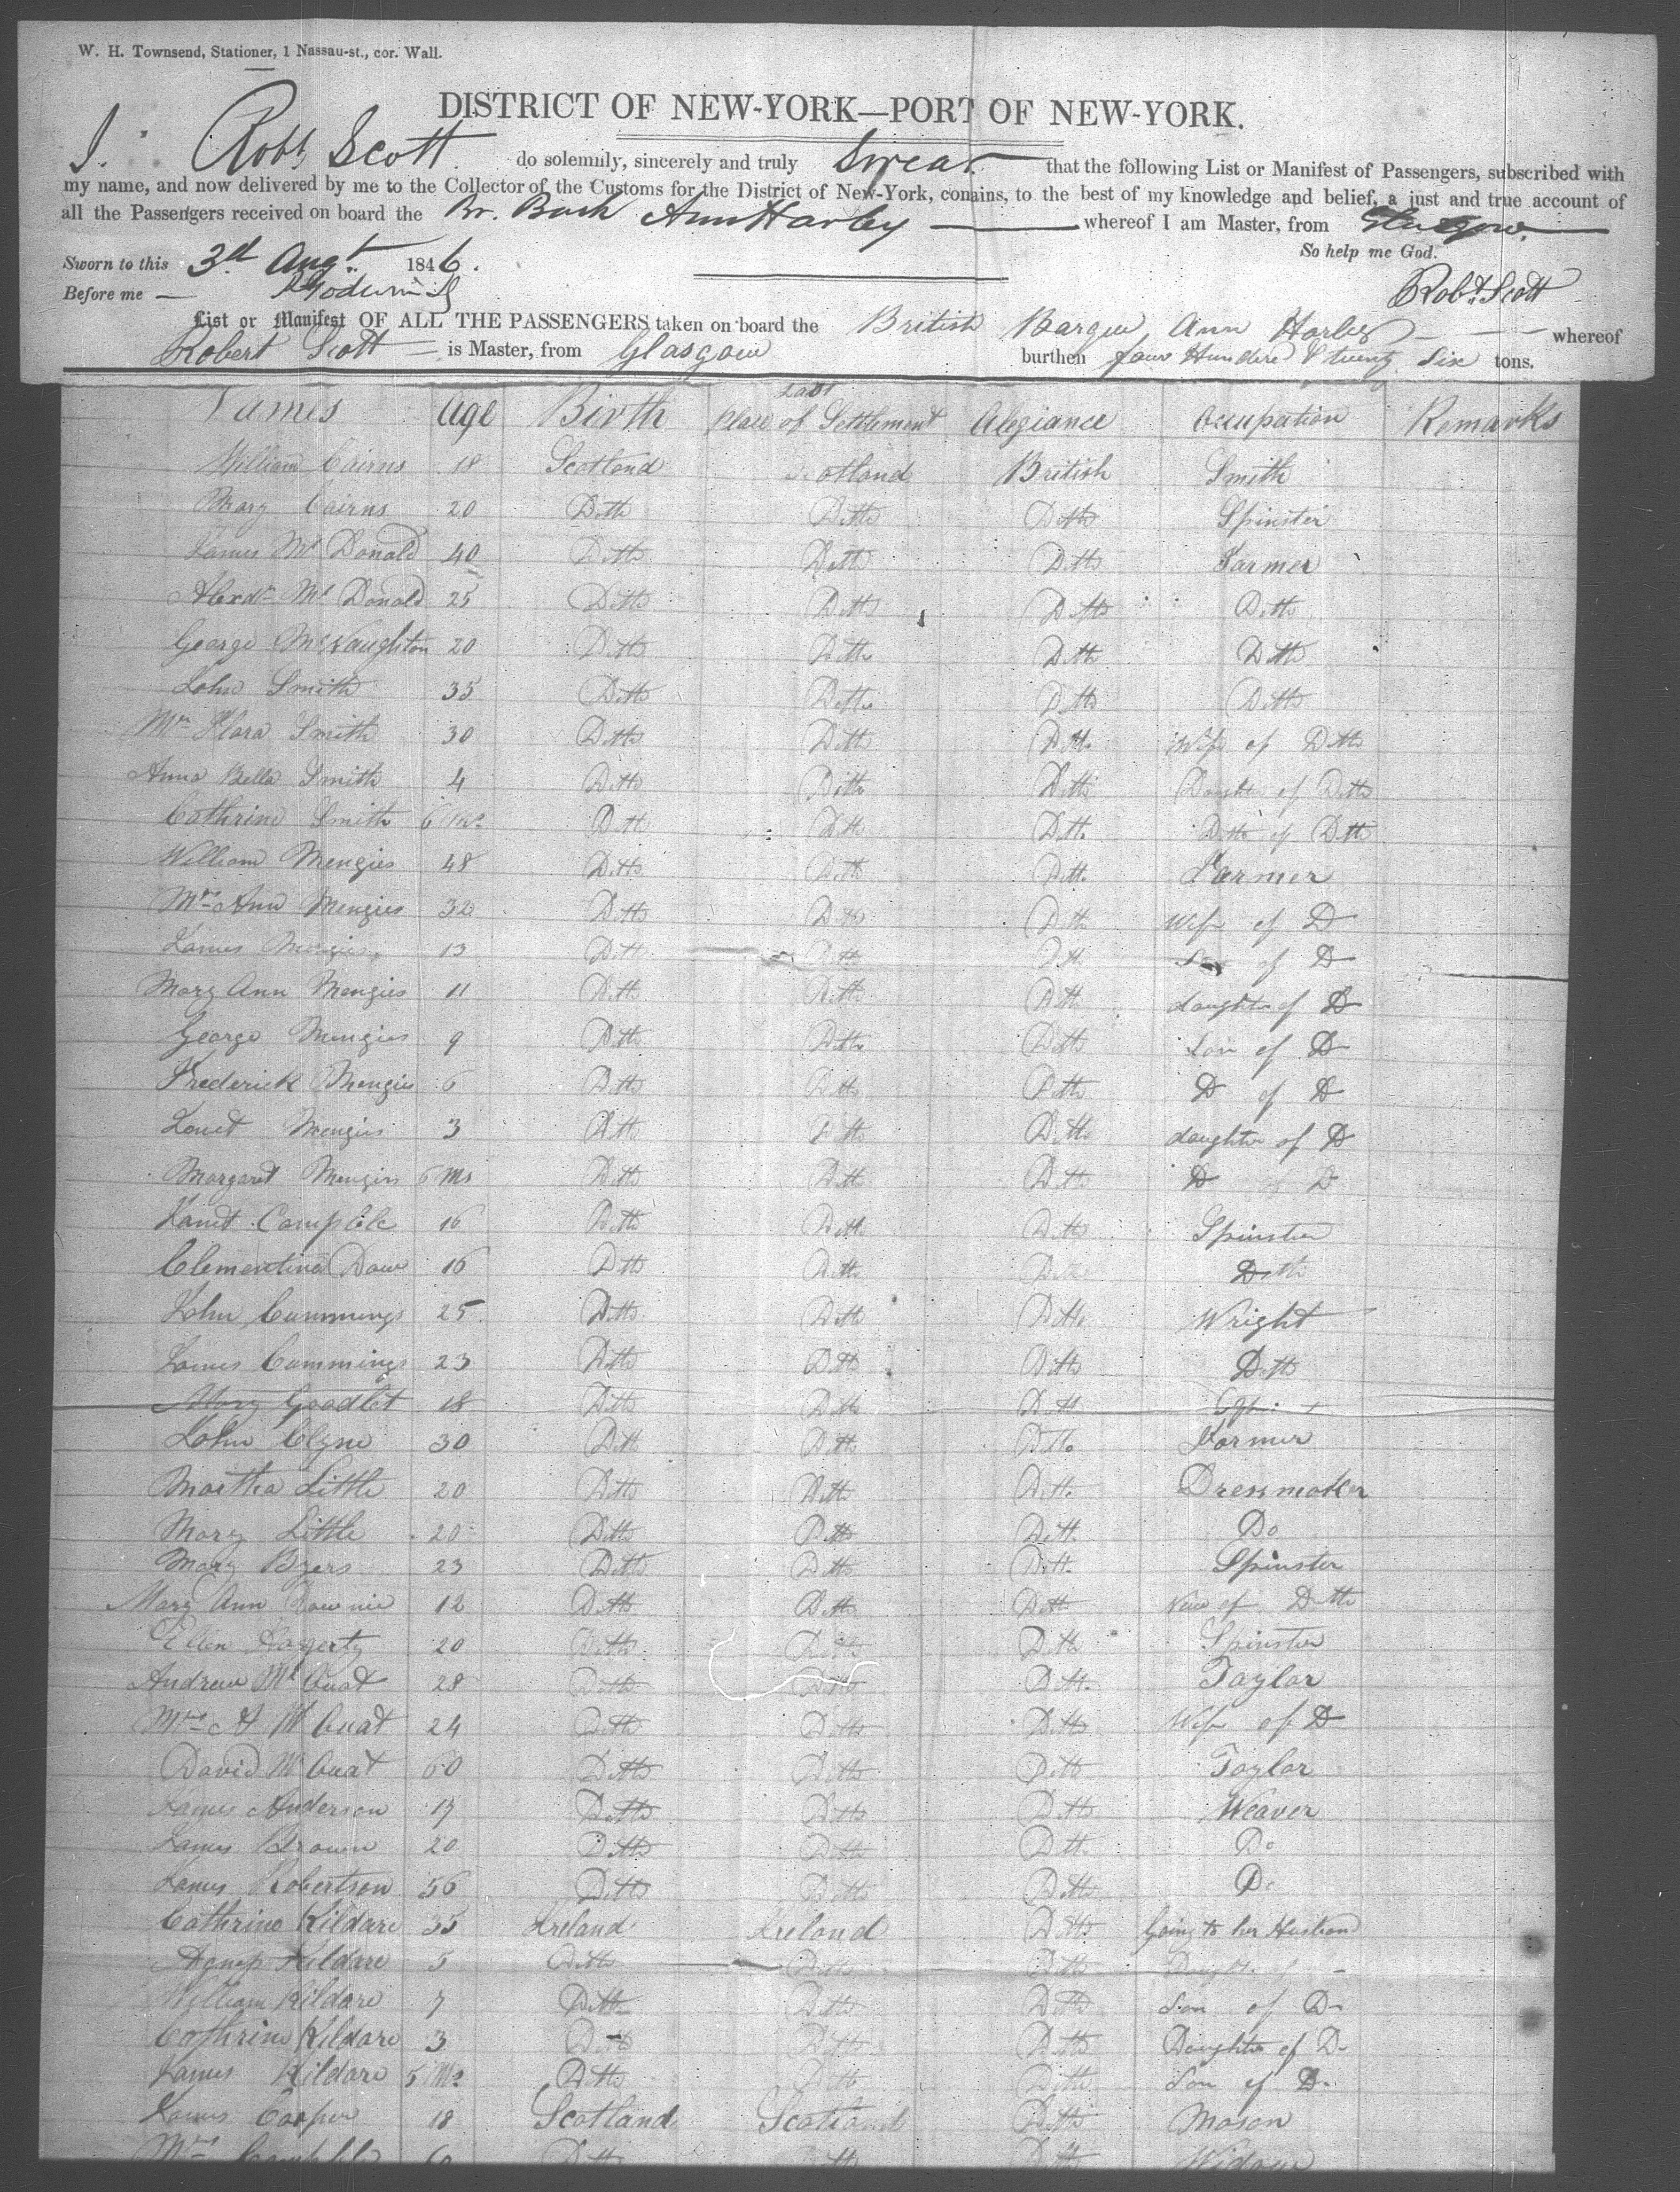 W. H. Townsend, Stationer, 1 Nassau-st., cor. Wall.
DISTRICT OF NEW-YORK—PORT OF NEW-YORK.
I. Robt. Scott do solemnly, sincerely and truly Swear that the following List or Manifest of Passengers, subscribed with
my name, and now delivered by me to the Collector of the Customs for the District of New-York, conains, to the best of my knowledge and belief, a just and true account of
all the Passengers received on board the Br. Bark Ann Harley whereof I am Master, from Glasgow.
So help me God.
Sworn to this 3d Augt. 1846.
Before me — Robt. Scott
List or Manifest OF ALL THE PASSENGERS taken on board the British Barque, Ann Harley — whereof
Robert Scott is Master, from Glasgow burthen four Hundred & twenty Six tons.
Names Age Birth Last place of Settlement Alegiance Occupation Remarks
William Cairns 18 Scotland Scotland British Smith
Mary Cairns 20 Ditto Ditto Ditto Spinster
James Mc Donald 40 Ditto Ditto Ditto Farmer
Alexdr Mc Donald 25 Ditto Ditto Ditto Ditto
George McNaughton 20 Ditto Ditto Ditto Ditto
John Smith 35 Ditto Ditto Ditto Ditto
Mrs Flora Smith 30 Ditto Ditto Ditto Wife of Ditto
Anna Bella Smith 4 Ditto Ditto Ditto Daughter of Ditto
Cathrine Smith 6 Ms Ditto Ditto Ditto Ditto of Ditto
William Mengies 48 Ditto Ditto Ditto Farmer
Mrs Ann Mengies 32 Ditto Ditto Ditto Wife of D
James Mengies 13 Ditto Ditto Ditto Son of D
Mary Ann Mengies 11 Ditto Ditto Ditto daughter of D
George Mengies 9 Ditto Ditto Ditto Son of D
Frederick Mengies 6 Ditto Ditto Ditto D of D
Janet Mengies 3 Ditto Ditto Ditto daughter of D
Margaret Mengies 6 Ms Ditto Ditto Ditto D of D
Janet Campble 16 Ditto Ditto Ditto Spinster
Clementina Dow 16 Ditto Ditto Ditto Ditto
John Cummings 25 Ditto Ditto Ditto Wright
James Cummings 23 Ditto Ditto Ditto Ditto
Mary Goodlet 18 Ditto Ditto Ditto
John Clyne 30 Ditto Ditto Ditto Farmer
Martha Little 20 Ditto Ditto Ditto Dressmaker
Mary Little 20 Ditto Ditto Ditto Do
Mary Byers 23 Ditto Ditto Ditto Spinster
Mary Ann Downie 12 Ditto Ditto Ditto of Ditto
Ellen Hagerty 20 Ditto Ditto Ditto Spinster
Andrew Mc Cuat 28 Ditto Ditto Ditto Taylor
Mrs A Mc Cuat 24 Ditto Ditto Ditto Wife of D
David Mc Cuat 60 Ditto Ditto Ditto Taylor
James Anderson 17 Ditto Ditto Ditto Weaver
James Brown 20 Ditto Ditto Ditto Do
James Robertson 56 Ditto Ditto Ditto Do
Cathrine Kildare 35 Ireland Ireland Ditto Going to her Husband
Kildare 5 Ditto Ditto Ditto Daughter of
William Kildare 7 Ditto Ditto Ditto Son of D
Cathrine Kildare 3 Ditto Ditto Ditto Daughter of D
James Kildare 5 Ms Ditto Ditto Ditto Son of D
James Cooper 18 Scotland Scotland Ditto Mason
Mrs Campble 60 Ditto Ditto Ditto Widow